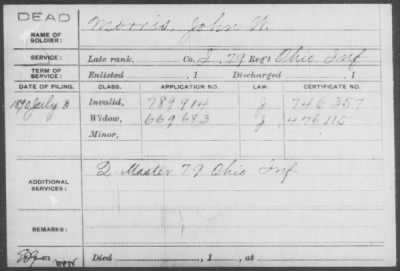 DEAD
NAME OF SOLDIER: Morris, John W.
SERVICE: Late rank, Co. I, 79 Reg't Ohio Inf
TERM OF SERVICE: Enlisted , 1 Discharged , 1
DATE OF FILING. CLASS. APPLICATION NO. LAW. CERTIFICATE NO.
1890 July Invalid, 789914 J 746357
Widow, 669683 J 476115
Minor.
ADDITIONAL SERVICES: Q Master 79 Ohio Inf
REMARKS:
Died , 1 , at